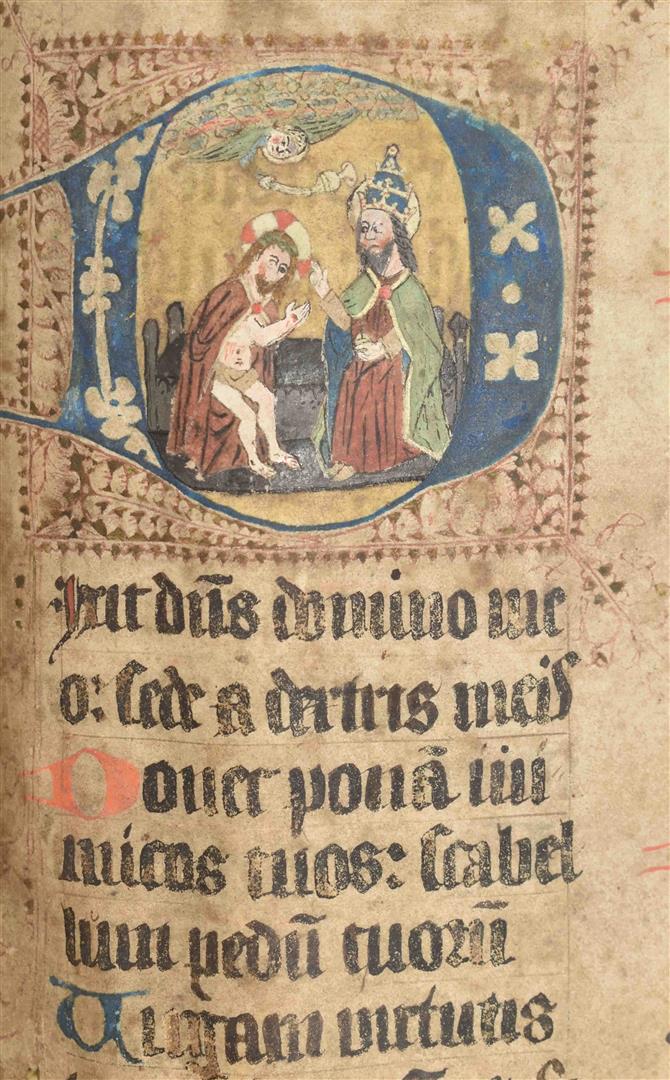 Dixit dn̄s domino me
o: sede a dextris meis
Donec ponā ini
micos tuos: scabel
lum pedū tuorū
Uirgam virtutis